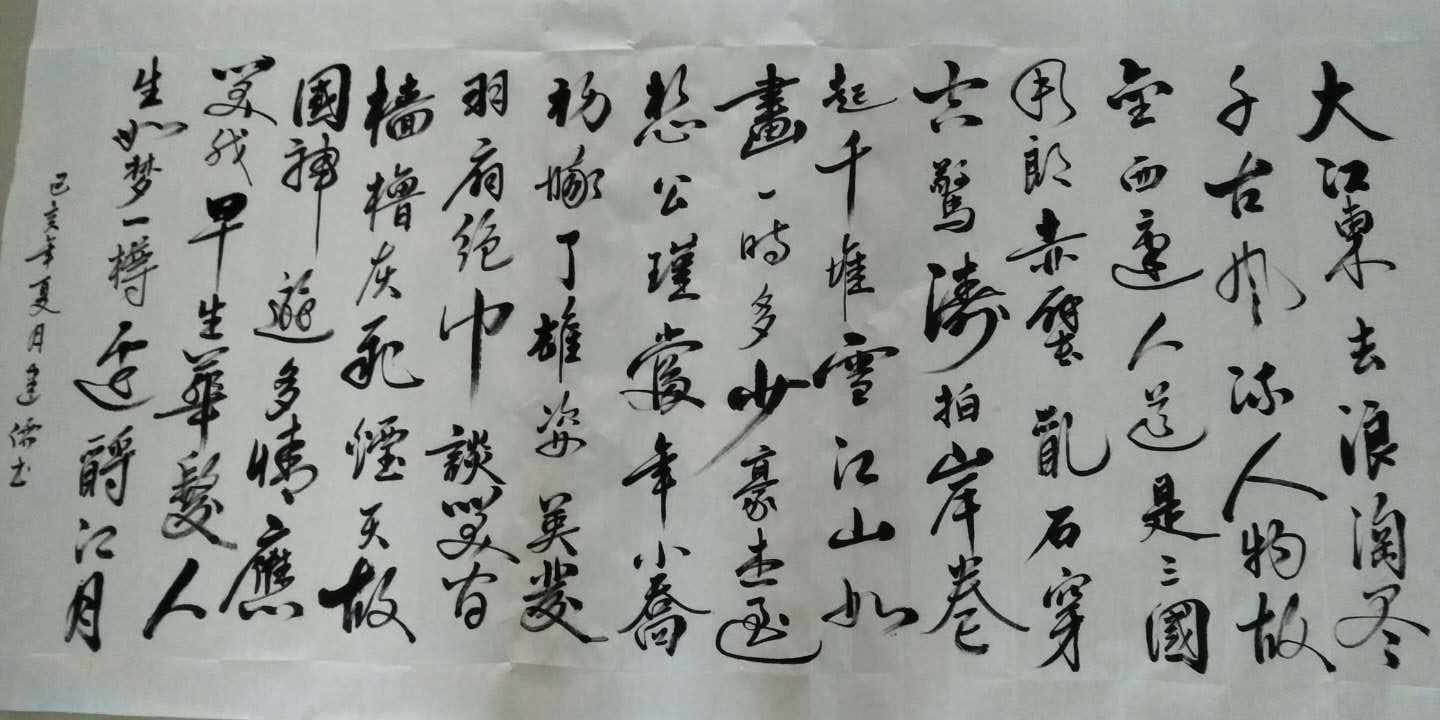 大江東去浪淘尽
千古风流人物故
垒西邊人道是三國
周郎赤壁亂石穿
空驚濤拍岸卷
起千堆雪江山如
畫一時多少豪杰遥
想公瑾當年小喬
初嫁了雄姿英發
羽扇纶巾談笑间
檣櫓灰飛煙灭故
國神遊多情應
笑我早生華髮人
生如梦一樽还酹江月
己亥年夏月建儒书